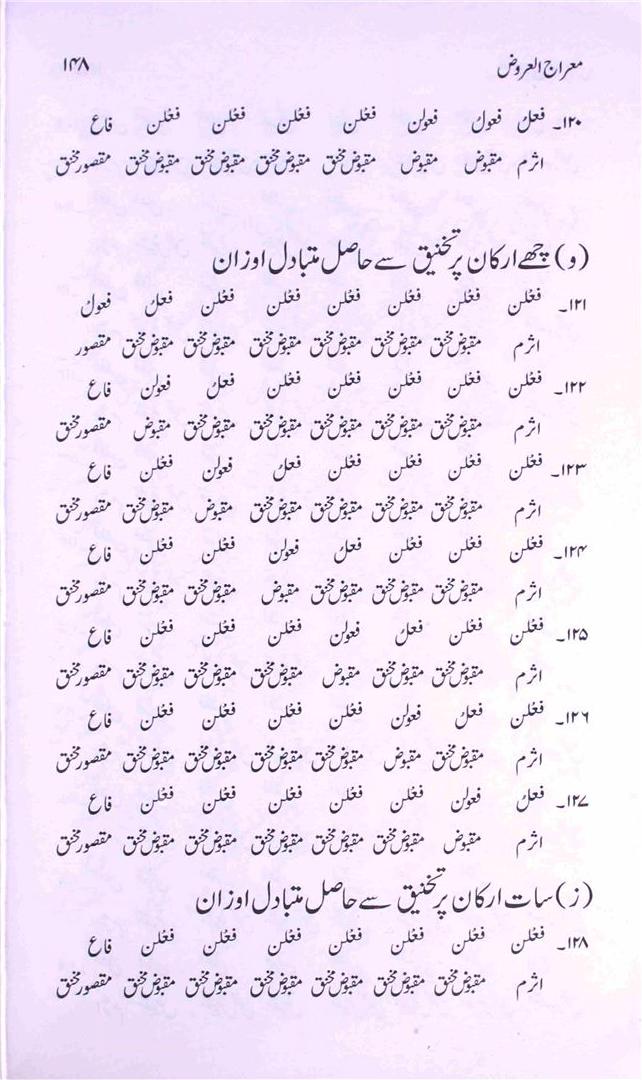 معراج العروض ۱۴۸
۱۲۰۔ فعلُ فعولُ فعولن فعْلن فعْلن فعْلن فعْلن فاع
اثرم مقبوض مقبوض مقبوض مخنق مقبوض مخنق مقبوض مخنق مقبوض مخنق مقصور مخنق
(و) چھے ارکان پر تخنیق سے حاصل متبادل اوزان
۱۲۱۔ فعْلن فعْلن فعْلن فعْلن فعْلن فعْلن فعلُ فعولُ
اثرم مقبوض مخنق مقبوض مخنق مقبوض مخنق مقبوض مخنق مقبوض مخنق مقبوض مخنق مقصور
۱۲۲۔ فعْلن فعْلن فعْلن فعْلن فعْلن فعلُ فعولن فاع
اثرم مقبوض مخنق مقبوض مخنق مقبوض مخنق مقبوض مخنق مقبوض مخنق مقبوض مقصور مخنق
۱۲۳۔ فعْلن فعْلن فعْلن فعْلن فعلُ فعولن فعْلن فاع
اثرم مقبوض مخنق مقبوض مخنق مقبوض مخنق مقبوض مخنق مقبوض مقبوض مخنق مقصور مخنق
۱۲۴۔ فعْلن فعْلن فعْلن فعلُ فعولن فعْلن فعْلن فاع
اثرم مقبوض مخنق مقبوض مخنق مقبوض مخنق مقبوض مقبوض مخنق مقبوض مخنق مقصور مخنق
۱۲۵۔ فعْلن فعْلن فعلُ فعولن فعْلن فعْلن فعْلن فاع
اثرم مقبوض مخنق مقبوض مخنق مقبوض مقبوض مخنق مقبوض مخنق مقبوض مخنق مقصور مخنق
۱۲۶۔ فعْلن فعلُ فعولن فعْلن فعْلن فعْلن فعْلن فاع
اثرم مقبوض مخنق مقبوض مقبوض مخنق مقبوض مخنق مقبوض مخنق مقبوض مخنق مقصور مخنق
۱۲۷۔ فعلُ فعولن فعْلن فعْلن فعْلن فعْلن فعْلن فاع
اثرم مقبوض مقبوض مخنق مقبوض مخنق مقبوض مخنق مقبوض مخنق مقبوض مخنق مقصور مخنق
(ز) سات ارکان پر تخنیق سے حاصل متبادل اوزان
۱۲۸۔ فعْلن فعْلن فعْلن فعْلن فعْلن فعْلن فعْلن فاع
اثرم مقبوض مخنق مقبوض مخنق مقبوض مخنق مقبوض مخنق مقبوض مخنق مقبوض مخنق مقصور مخنق